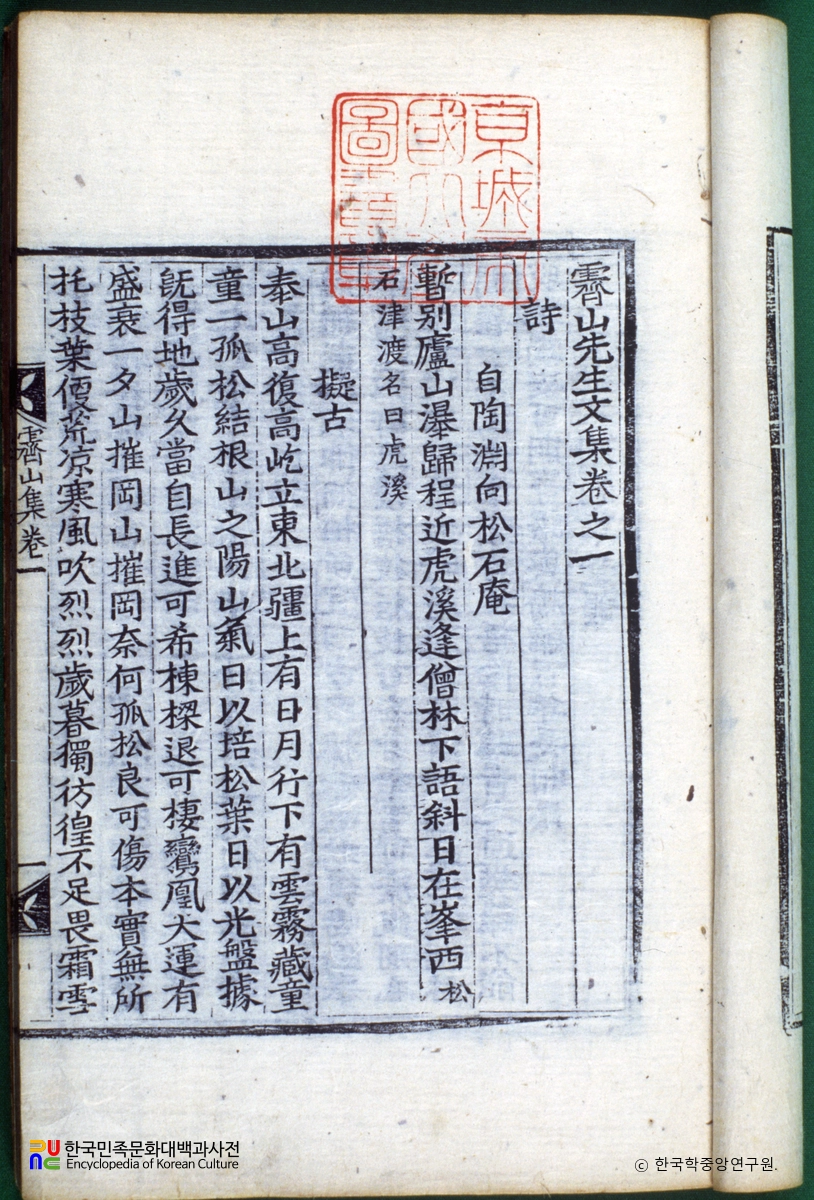 京城帝
國大學
圖書章
霽山先生文集卷之一
詩
自陶淵向松石庵
暫別廬山瀑歸程近虎溪逢僧林下語斜日在峯西松
石津渡名曰虎溪
擬古
泰山高復高屹立東北疆上有日月行下有雲霧藏童
童一孤松結根山之陽山氣日以培松葉日以光盤據
旣得地歲久當自長進可希棟樑退可棲鸞凰大運有
盛衰一夕山摧岡山摧岡奈何孤松良可傷本實無所
托枝葉便荒凉寒風吹烈烈歲暮獨彷徨不足畏霜雪
霽山集卷一
一
한국민족문화대백과사전
Encyclopedia of Korean Culture
© 한국학중앙연구원.